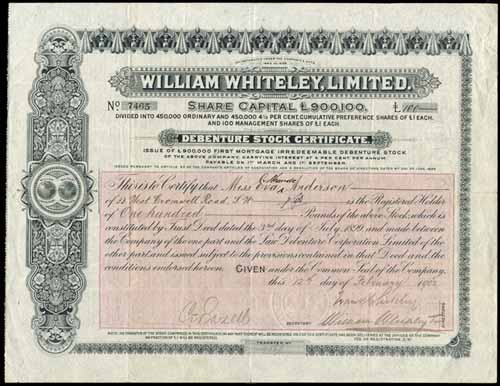 INCORPORATED UNDER THE COMPANIES ACTS
WILLIAM WHITELEY, LIMITED.
No 7405 SHARE CAPITAL £900,100. £100
DIVIDED INTO 450,000 ORDINARY AND 450,000 4½ PER CENT. CUMULATIVE PREFERENCE SHARES OF £1 EACH.
AND 100 MANAGEMENT SHARES OF £1 EACH.
DEBENTURE STOCK CERTIFICATE.
ISSUE OF £900,000 FIRST MORTGAGE IRREDEEMABLE DEBENTURE STOCK
OF THE ABOVE COMPANY, CARRYING INTEREST AT 4 PER CENT PER ANNUM,
PAYABLE ON 1ST MARCH AND 1ST SEPTEMBER.
This is to Certify that Miss Eva Anderson
of Cromwell Road, S.W. is the Registered Holder
of One hundred Pounds of the above Stock, which is
constituted by Trust Deed dated the 3rd day of July 1899 and made between
the Company of the one part and the Law Debenture Corporation Limited of the
other part and issued subject to the provisions contained in that Deed and the
conditions endorsed hereon. GIVEN under the Common Seal of the Company,
this 12th day of February 1902
SECRETARY William Whiteley